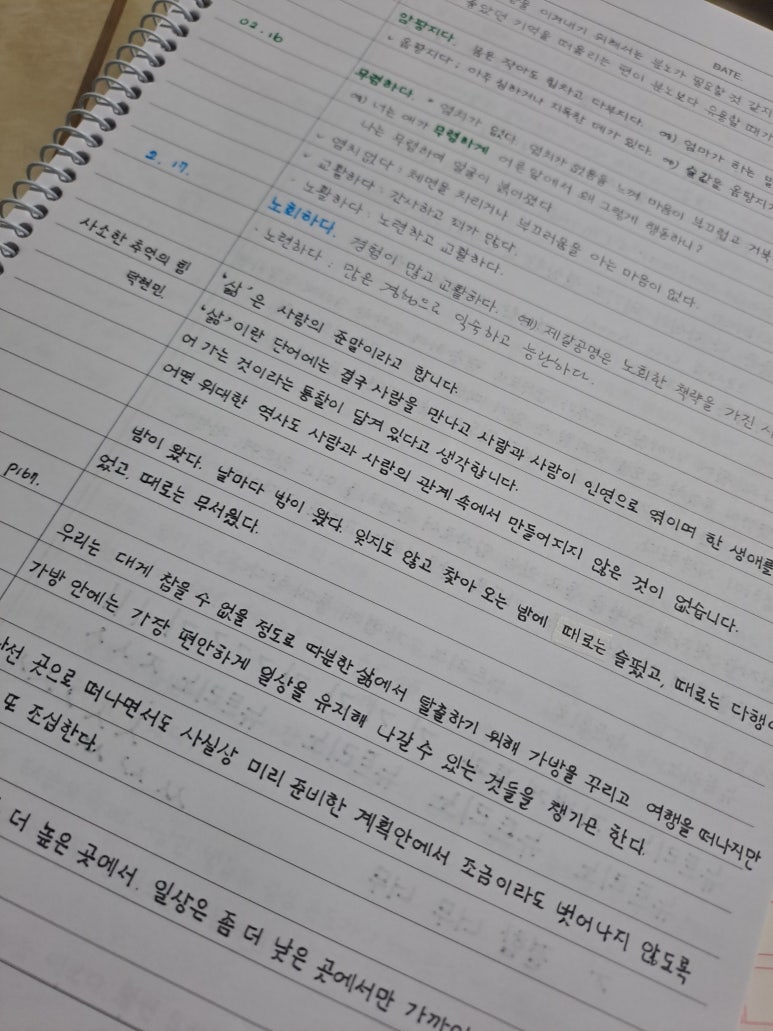 이겨내기 위해서는 분노가 필요할 것 같지
좋았던 기억을 떠올리는 편이 분노보다 유용할 때가
DATE.
02.16
암팡지다. 몸은 작아도 힘차고 다부지다. 예) 엄마가 하는 말
옴팡지다 : 아주 심하거나 지독한 데가 있다. 예) 술값을 옴팡지게
무렴하다. 염치가 없다. 염치가 없음을 느껴 마음이 부끄럽고 거북
예) 너는 애가 무렴하게 어른 앞에서 왜 그렇게 행동하니?
나는 무렴하여 얼굴이 붉어졌다
염치 없다 : 체면을 차리거나 부끄러움을 아는 마음이 없다.
교활하다 : 간사하고 꾀가 많다.
노활하다 : 노련하고 교활하다.
2.17.
노회하다. 경험이 많고 교활하다. 예) 제갈공명은 노회한 책략을 가진
노련하다 : 많은 경험으로 익숙하고 능란하다.
사소한 추억의 힘
탁현민.
'삶'은 사람의 준말이라고 합니다.
'삶'이란 단어에는 결국 사람을 만나고 사람과 사람이 인연으로 엮이며 한 생애를
어 가는 것이라는 통찰이 담겨 있다고 생각합니다.
어떤 위대한 역사도 사람과 사람의 관계 속에서 만들어지지 않은 것이 없습니다.
P167.
밤이 왔다. 날마다 밤이 왔다. 잊지도 않고 찾아 오는 밤에 때로는 슬펐고, 때로는 다행이
었고, 때로는 무서웠다.
우리는 대게 참을 수 없을 정도로 따분한 삶에서 탈출하기 위해 가방을 꾸리고 여행을 떠나지만
가방 안에는 가장 편안하게 일상을 유지해 나갈 수 있는 것들을 챙기곤 한다.
낯선 곳으로 떠나면서도 사실상 미리 준비한 계획안에서 조금이라도 벗어나지 않도록
또 조심한다.
더 높은 곳에서. 일상은 좀 더 낮은 곳에서만 가까이